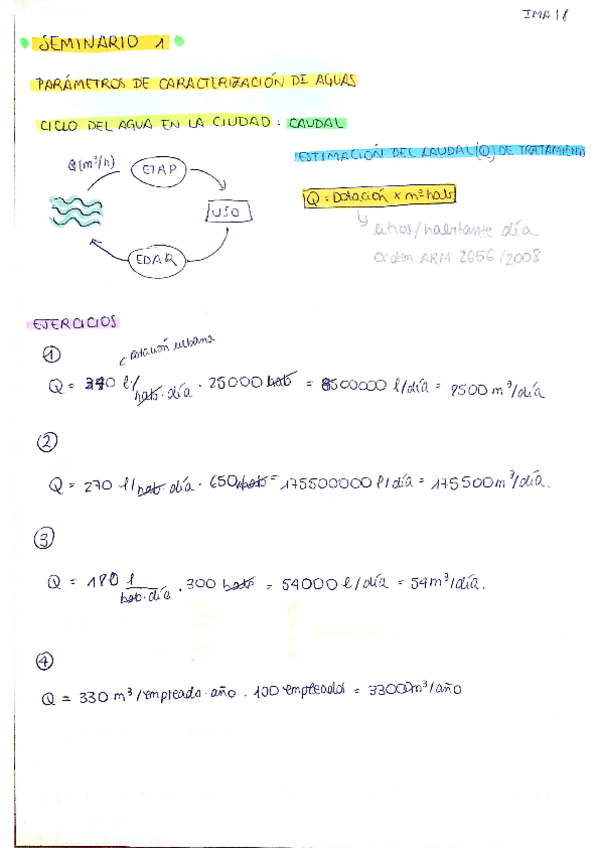 IMA 18
SEMINARIO 1
PARÁMETROS DE CARACTERIZACIÓN DE AGUAS
CICLO DEL AGUA EN LA CIUDAD: CAUDAL
ESTIMACIÓN DEL CAUDAL (Q) DE TRATAMIENT
Q(m³/h)
ETAP
USO
EDAR
Q = Dotación x nº habs
litros/habitante día
Orden ARM 2656/2008
EJERCICIOS
①
Dotación urbana
Q = 340 l/hab·día · 25000 hab = 8500000 l/día = 8500 m³/día
②
Q = 270 l/hab·día · 650 = 175500000 l/día = 175500 m³/día.
③
Q = 180 l/hab·día · 300 hab = 54000 l/día = 54 m³/día.
④
Q = 330 m³/empleado·año · 100 empleados = 33000 m³/año